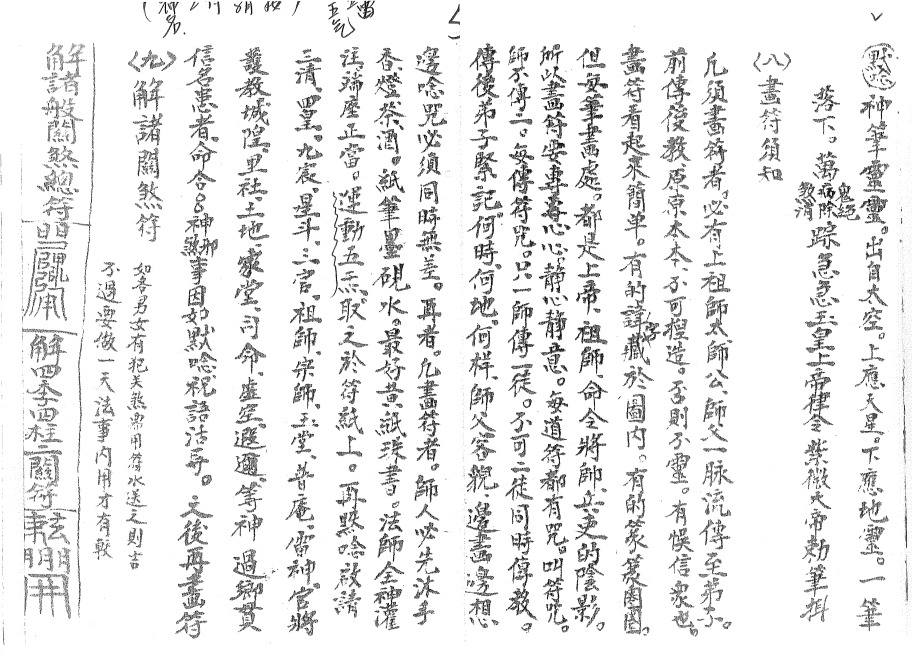 默唸 神筆靈靈。出自太空。上應天星。下應地靈。一筆
落下。萬病除教消鬼絕踪急急玉皇上帝律令紫微大帝勅筆掛
〈八〉畫符須知
凡須畫符者。必有上祖師太、師公、師父一脈流傳至弟子。
前傳後教原原本本、不可捏造。否則不靈。有悞信衆也。
畫符看起來簡单。有的諱字藏於圖内。有的篆篆圈圈。
但每筆畫處。都是上帝、祖師、命令將帥、兵吏的陰影。
所以畫符要專專心心。静心静意。每道符都有咒。叫符咒。
師不傳二。每傳符咒。只一師傳一徒。不可二徒同時傳教。
傳後弟子緊記。何時、何地、何樣、師父容貌、邊畫邊想
邊唸咒必須同時無差。再者。凡畫符者。師人必先沐手
香、燈、茶、酒。紙筆墨硯水。最好黄紙珠書。法師全神灌
注、端座正當。運動五炁。取之於符紙上。再默唸啟請
三清、四皇。九宸、星斗、三官、祖師、宗師、玉堂、普庵、雷神、官將
護教城隍、里社、土地、家堂、司命、虚空、遐邇、等神 過鄉貫
信名患者、命合〇〇神煞那事因如默唸祝語法予。 之後再畫符
〈九〉解諸關煞符
如各男女有犯关煞常用符水送之則吉
不過要做一天法事内用才有較
解諸般關煞總符
解四季四柱二關符